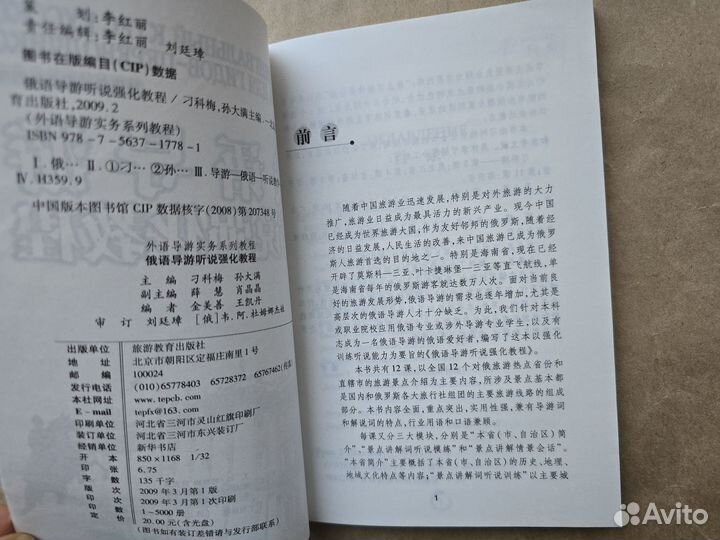 划:李红丽
责任编辑:李红丽 刘廷璋
图书在版编目(CIP)数据
俄语导游听说强化教程/刁科梅,孙大满主编.—
育出版社,2009.2
(外语导游实务系列教程)
ISBN 978-7-5637-1778-1
Ⅰ.俄… Ⅱ.①刁…②孙… Ⅲ.导游—俄语—听说教
Ⅳ.H359.9
中国版本图书馆CIP数据核字(2008)第207348号
外语导游实务系列教程
俄语导游听说强化教程
主编 刁科梅 孙大满
副主编 薛慧 肖晶晶
编者 金美善 王凯丹
审订 刘廷璋 [俄]韦.阿.杜姆娜杰娃
出版单位 旅游教育出版社
地址 北京市朝阳区定福庄南里1号
邮编 100024
发行电话 (010)65778403 65728372 65767462(传真)
本社网址 www.tepcb.com
E-mail tepfx@163.com
印刷单位 河北省三河市灵山红旗印刷厂
装订单位 河北省三河市东兴装订厂
经销单位 新华书店
开本 850×1168 1/32
印张 6.75
字数 135千字
版次 2009年3月第1版
印次 2009年3月第1次印刷
印数 1-5000册
定价 20.00元(含光盘)
(图书如有装订差错请与发行部联系)
前言
随着中国旅游业迅速发展,特别是对外旅游的大力
推广,旅游业日益成为最具活力的新兴产业。现今中国
已经成为世界旅游大国。作为友好邻邦的俄罗斯,随着经
济的日益发展,人民生活的改善,来中国旅游已成为俄罗
斯人旅游首选的目的地之一。特别是海南省,现在已经
单开辟了莫斯科—三亚、叶卡捷琳堡—三亚等直飞航线,单
是海南省每年的俄罗斯游客就达数万人次。面对当前良
好的旅游发展形势,俄语导游的需求也逐年增加,尤其是
高层次的俄语导游人才十分缺乏。为此,我们针对本科
或职业院校应用俄语专业或涉外导游专业学生,以及有
志成为一名俄语导游的俄语爱好者,编写了这本以强化
训练听说能力为要旨的《俄语导游听说强化教程》。
本书共有12课,以全国12个对俄旅游热点省份和
直辖市的旅游景点介绍为主要内容,所涉及景点基本都
是国内和俄罗斯各大旅行社组团的主要旅游线路的组成
部分。本书内容全面,重点突出,实用性强,兼有导游词
和解说词的特点,行业用语和口语兼顾。
每课又分三大模块,分别是“本省(市、自治区)简
介”、“景点讲解词听说模练”和“景点讲解情景会话”。
“本省简介”主要概括了本省(市、自治区)的历史、地理、
地域文化特点等内容;“景点讲解词听说训练”以主要城
1
Avito